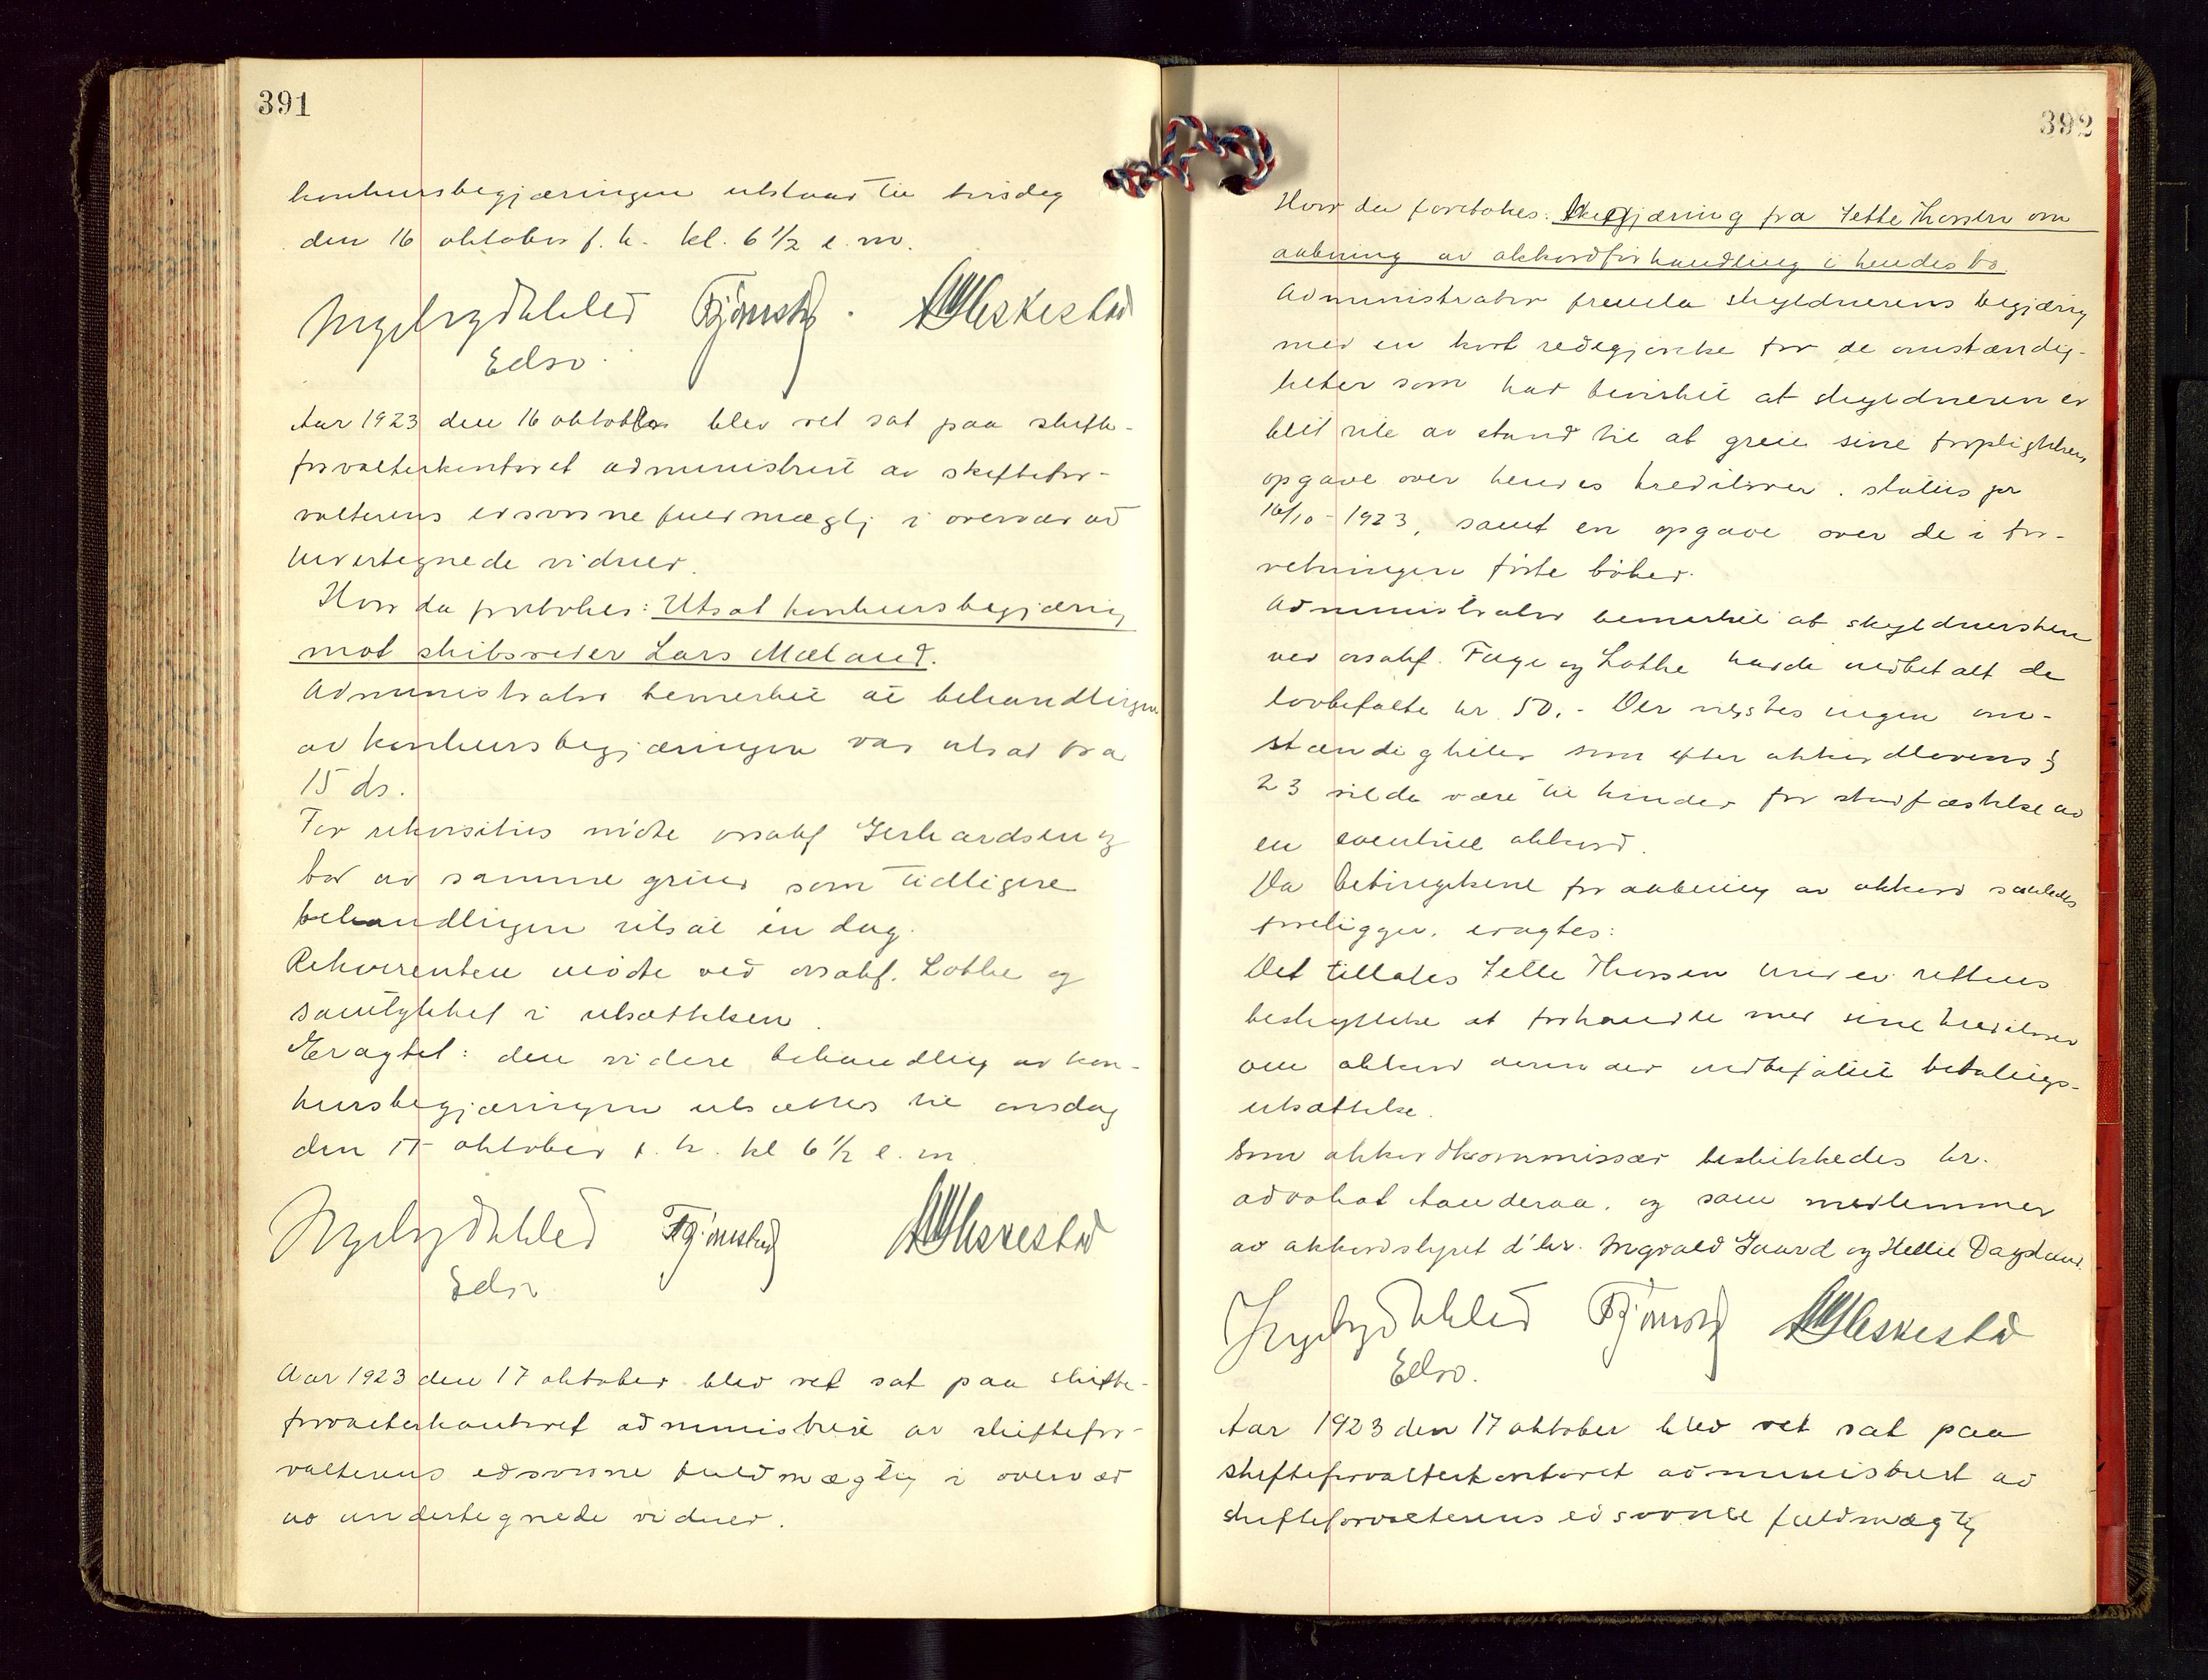 391
konkursbegjæringen utstaar til tirsdag
den 16 oktober f. k. kl. 6 1/2 e. m.
Edsv.
Aar 1923 den 16 oktober blev ret sat paa skifte-
forvalterkontoret administrert av skiftefor-
valterens edsvorne fuldmægtig i overvær av
undertegnede vidner.
Hvor da foretokes: Utsat konkursbegjæring
mot skibsreder Lars Mæland.
Administrator bemerket at behandlingen
av konkursbegjæringen var utsat fra
15 ds.
For rekvisitus møtte orsakf Gerhardsen og
bad av samme grund som tidligere
behandlingen utsat en dag.
Rekvirenten møtte ved orsakf. Lothe og
samtykket i utsættelsen.
Eragtet: den videre behandling av kon-
kursbegjæringen utsættes til onsdag
den 17 oktober f. k. kl 6 1/2 e. m.
Edsv
Aar 1923 den 17 oktober blev ret sat paa skifte-
forvalterkontoret administrert av skiftefor-
valterens edsvorne fuldmægtig i overvær
av undertegnede vidner.
392
Hvor da foretokes: Begjæring fra Jette Thorsen om
aabning av akkordforhandling i hendes bo.
Administrator fremla skyldnerens begjæring
med en kort redegjørelse for de omstændig-
heter som har bevirket at skyldneren er
blit ute av stand til at greie sine forpligtelser,
opgave over hendes kreditorer, status pr
16/10-1923, samt en opgave over de i for-
retningen førte bøker.
Administrator bemerket at skyldnersken
ved orsakf. Fuge og Lothe hadde indbetalt de
lovbefalte kr 50,- Der vistes ingen om-
stændigheter som efter akkordlovens §
23 vilde være til hinder for stadfæstelse av
en eventuel akkord.
Da betingelsene for aabning av akkord saaledes
foreligger, eragtes:
Det tillates Jette Thorsen under rettens
beskyttelse at forhandle med sine kreditorer
om akkord derunder indbefattet betalings-
utsættelse.
Som akkordkommissær beskikkedes hr.
advokat Aanderaa, og som medlemmer
av akkordstyret d'hr. Ingvald Gaard og Hellie Dagsland.
Edsv.
Aar 1923 den 17 oktober blev ret sat paa
skifteforvalterkontoret administrert av
skifteforvalterens edsvorne fuldmægtig